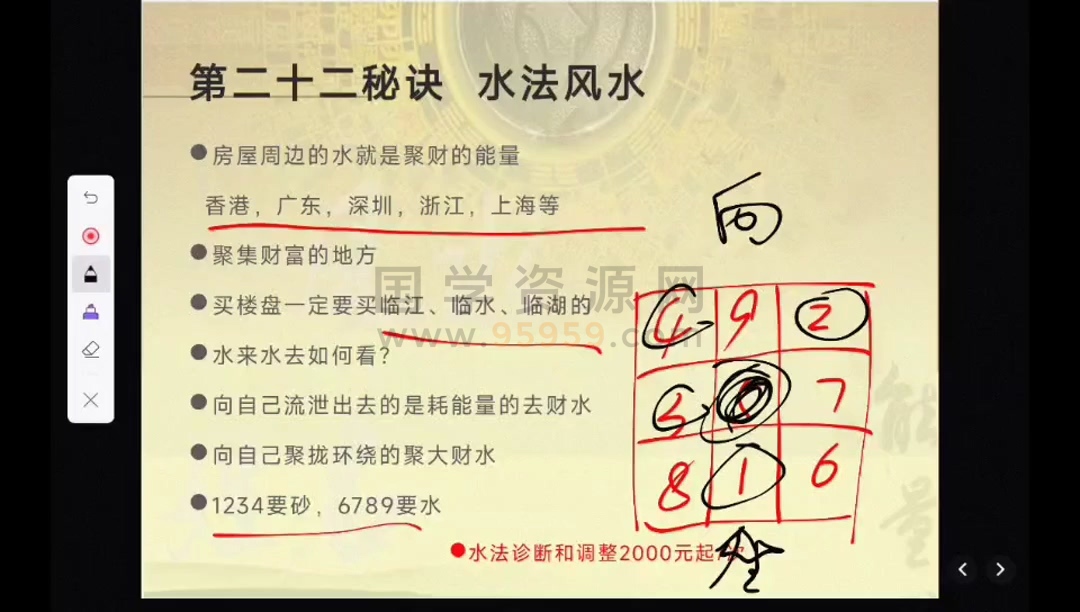 第二十二秘诀 水法风水
●房屋周边的水就是聚财的能量
香港，广东，深圳，浙江，上海等
●聚集财富的地方
●买楼盘一定要买临江、临水、临湖的
●水来水去如何看？
●向自己流泄出去的是耗能量的去财水
●向自己聚拢环绕的聚大财水
●1234要砂，6789要水
●水法诊断和调整2000元起
国学资源网
www.95959.com
向
9 2
7
8 1 6
坐
能
量